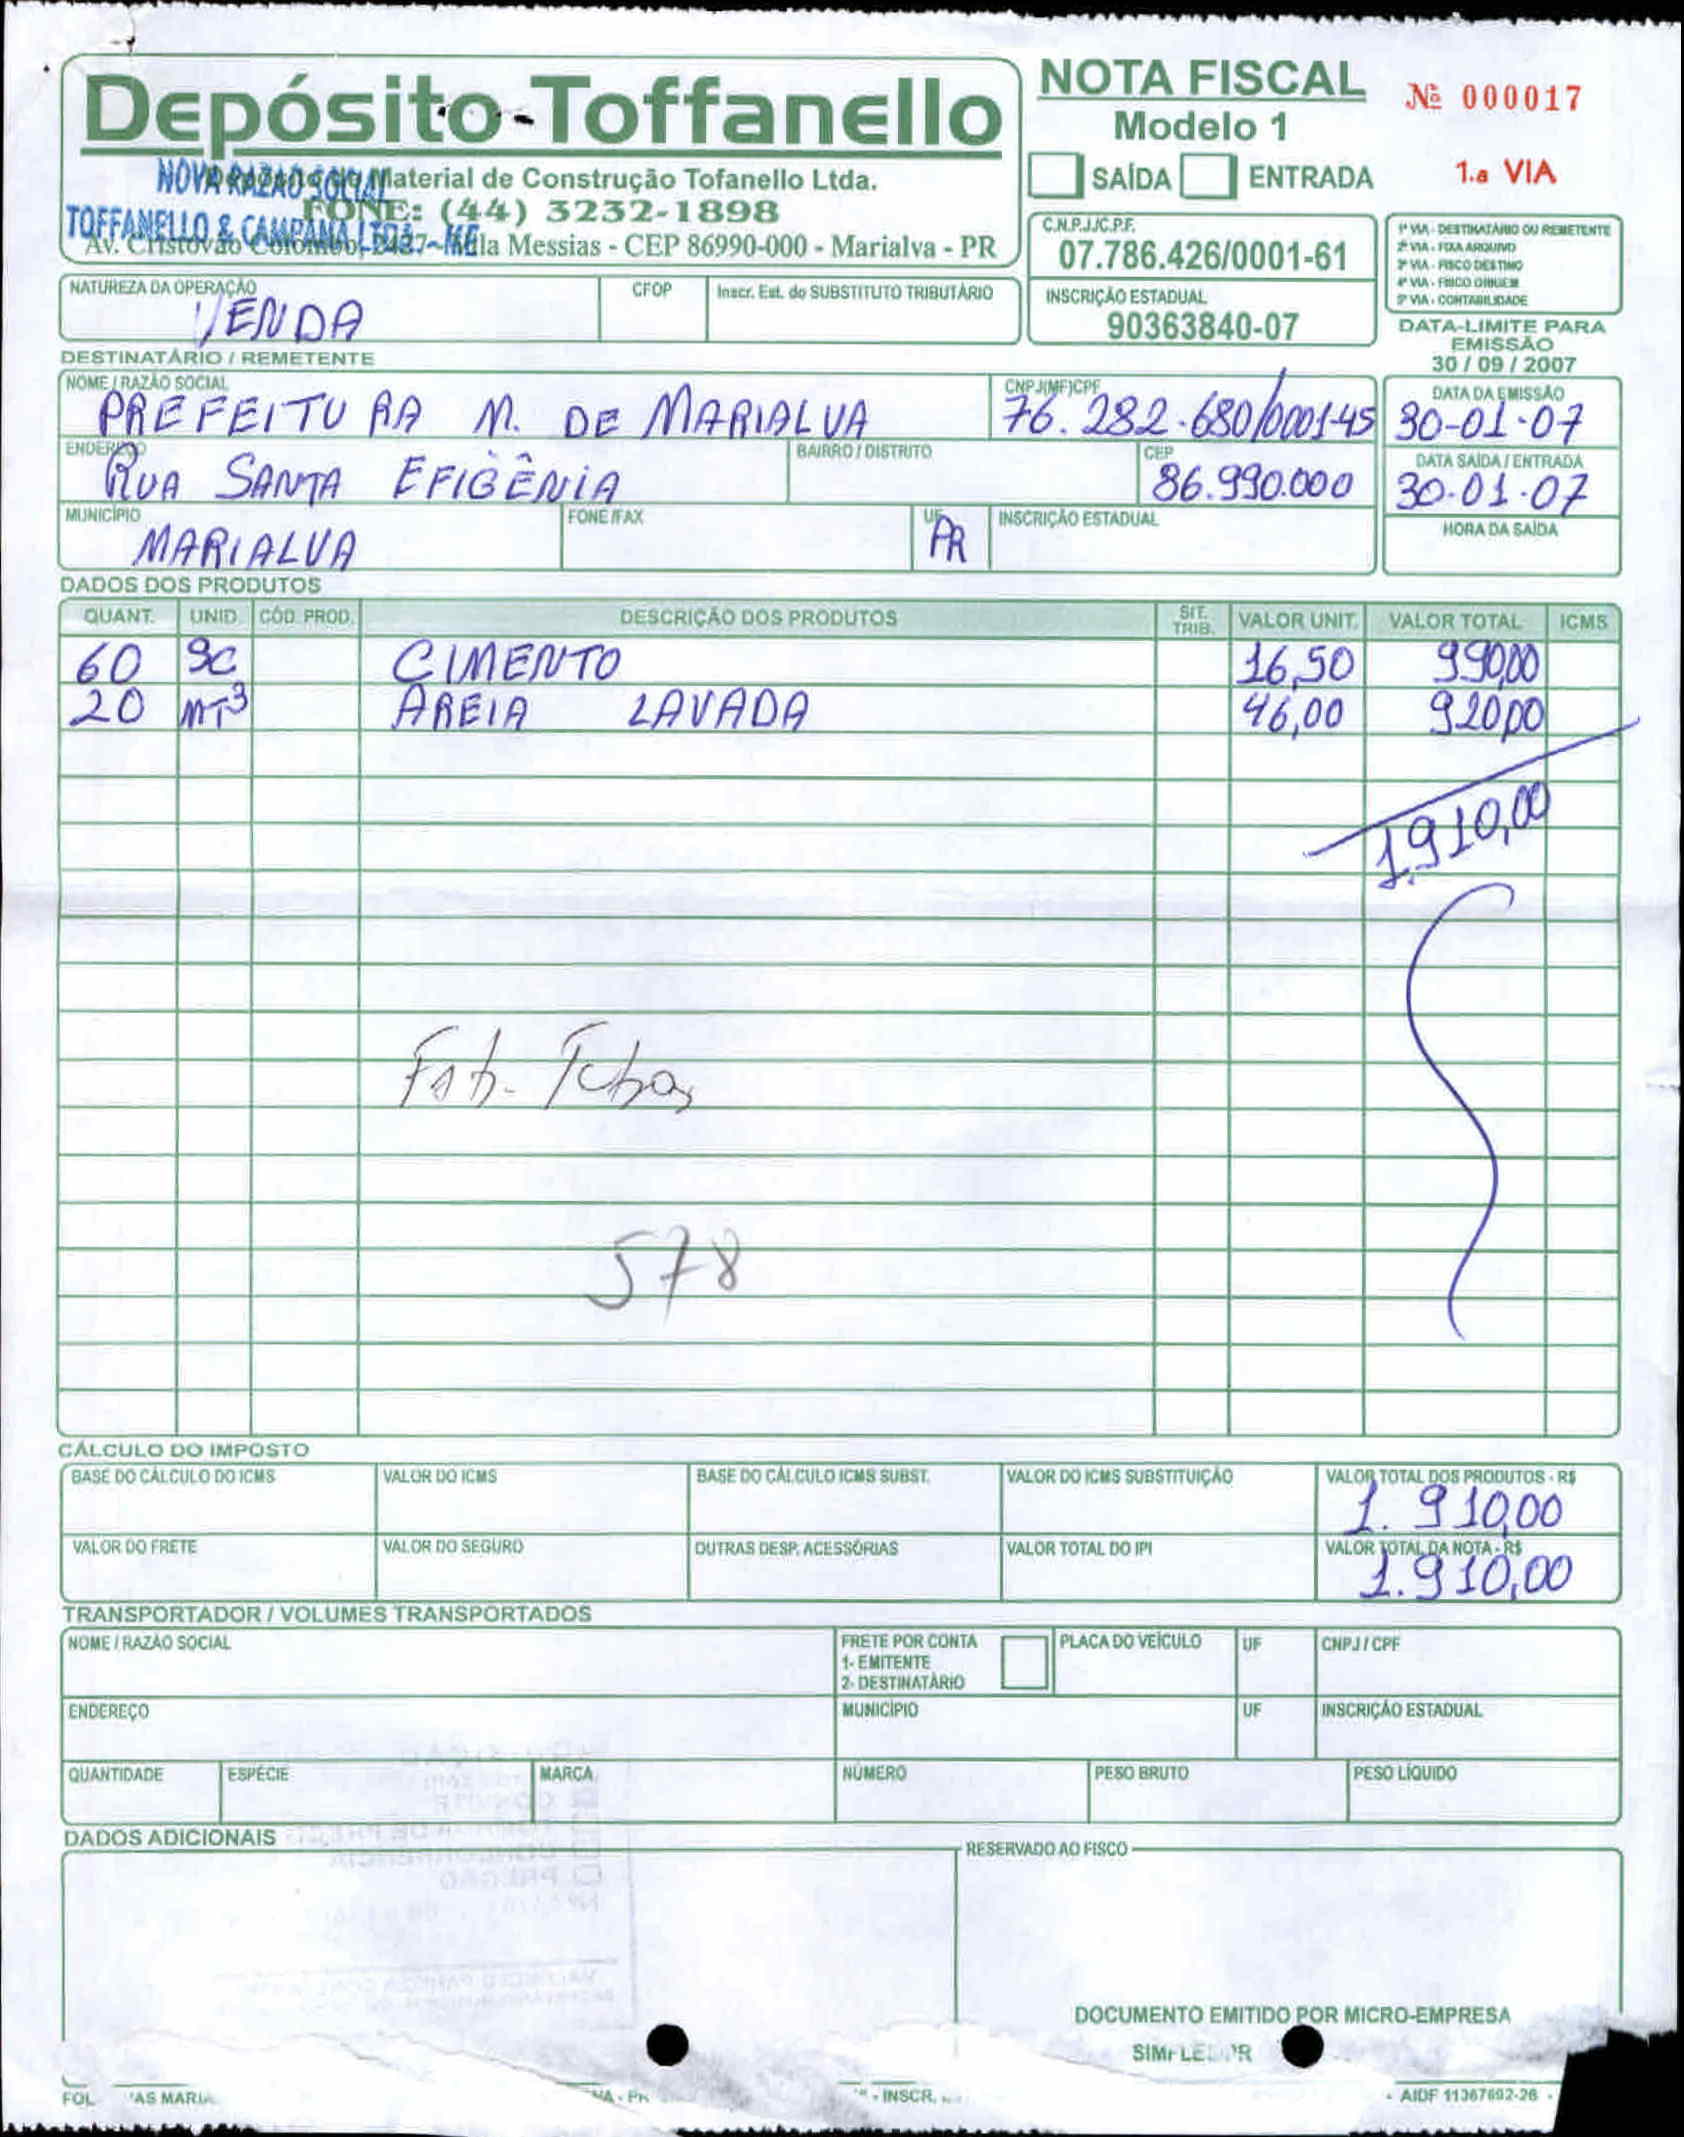 Depósito Toffanello
NOTA FISCAL
Modelo 1
Nº 000017
SAÍDA ENTRADA
1.a VIA
NOVA RAZÃO SOCIAL
Material de Construção Tofanello Ltda.
FONE: (44) 3232-1898
TOFFANELLO & CAMPANA LTDA - ME
Av. Cristóvão Colombo, 2437 - Vila Messias - CEP 86990-000 - Marialva - PR
C.N.P.J./C.P.F.
07.786.426/0001-61
1ª VIA - DESTINATÁRIO OU REMETENTE
2ª VIA - FIXA ARQUIVO
3ª VIA - FISCO DESTINO
4ª VIA - FISCO ORIGEM
5ª VIA - CONTABILIDADE
NATUREZA DA OPERAÇÃO
VENDA
CFOP
Inscr. Est. do SUBSTITUTO TRIBUTÁRIO
INSCRIÇÃO ESTADUAL
90363840-07
DATA-LIMITE PARA
EMISSÃO
30 / 09 / 2007
DESTINATÁRIO / REMETENTE
NOME / RAZÃO SOCIAL
PREFEITURA M. DE MARIALVA
CNPJ(MF)CPF
76.282.680/0001-45
DATA DA EMISSÃO
30-01-07
ENDEREÇO
RUA SANTA EFIGÊNIA
BAIRRO / DISTRITO
CEP
86.990.000
DATA SAÍDA / ENTRADA
30.01.07
MUNICÍPIO
MARIALVA
FONE /FAX
UF
PR
INSCRIÇÃO ESTADUAL
HORA DA SAÍDA
DADOS DOS PRODUTOS
QUANT. UNID. CÓD. PROD. DESCRIÇÃO DOS PRODUTOS SIT. TRIB. VALOR UNIT. VALOR TOTAL ICMS
60 SC CIMENTO 16,50 990,00
20 MT³ AREIA LAVADA 46,00 920,00
1.910,00
578
CÁLCULO DO IMPOSTO
BASE DO CÁLCULO DO ICMS
VALOR DO ICMS
BASE DO CÁLCULO ICMS SUBST.
VALOR DO ICMS SUBSTITUIÇÃO
VALOR TOTAL DOS PRODUTOS - R$
1.910,00
VALOR DO FRETE
VALOR DO SEGURO
OUTRAS DESP. ACESSÓRIAS
VALOR TOTAL DO IPI
VALOR TOTAL DA NOTA - R$
1.910,00
TRANSPORTADOR / VOLUMES TRANSPORTADOS
NOME / RAZÃO SOCIAL
FRETE POR CONTA
1- EMITENTE
2- DESTINATÁRIO
PLACA DO VEÍCULO
UF
CNPJ / CPF
ENDEREÇO
MUNICÍPIO
UF
INSCRIÇÃO ESTADUAL
QUANTIDADE
ESPÉCIE
MARCA
NÚMERO
PESO BRUTO
PESO LÍQUIDO
DADOS ADICIONAIS
RESERVADO AO FISCO
DOCUMENTO EMITIDO POR MICRO-EMPRESA
- INSCR.
- AIDF 11367692-26 -